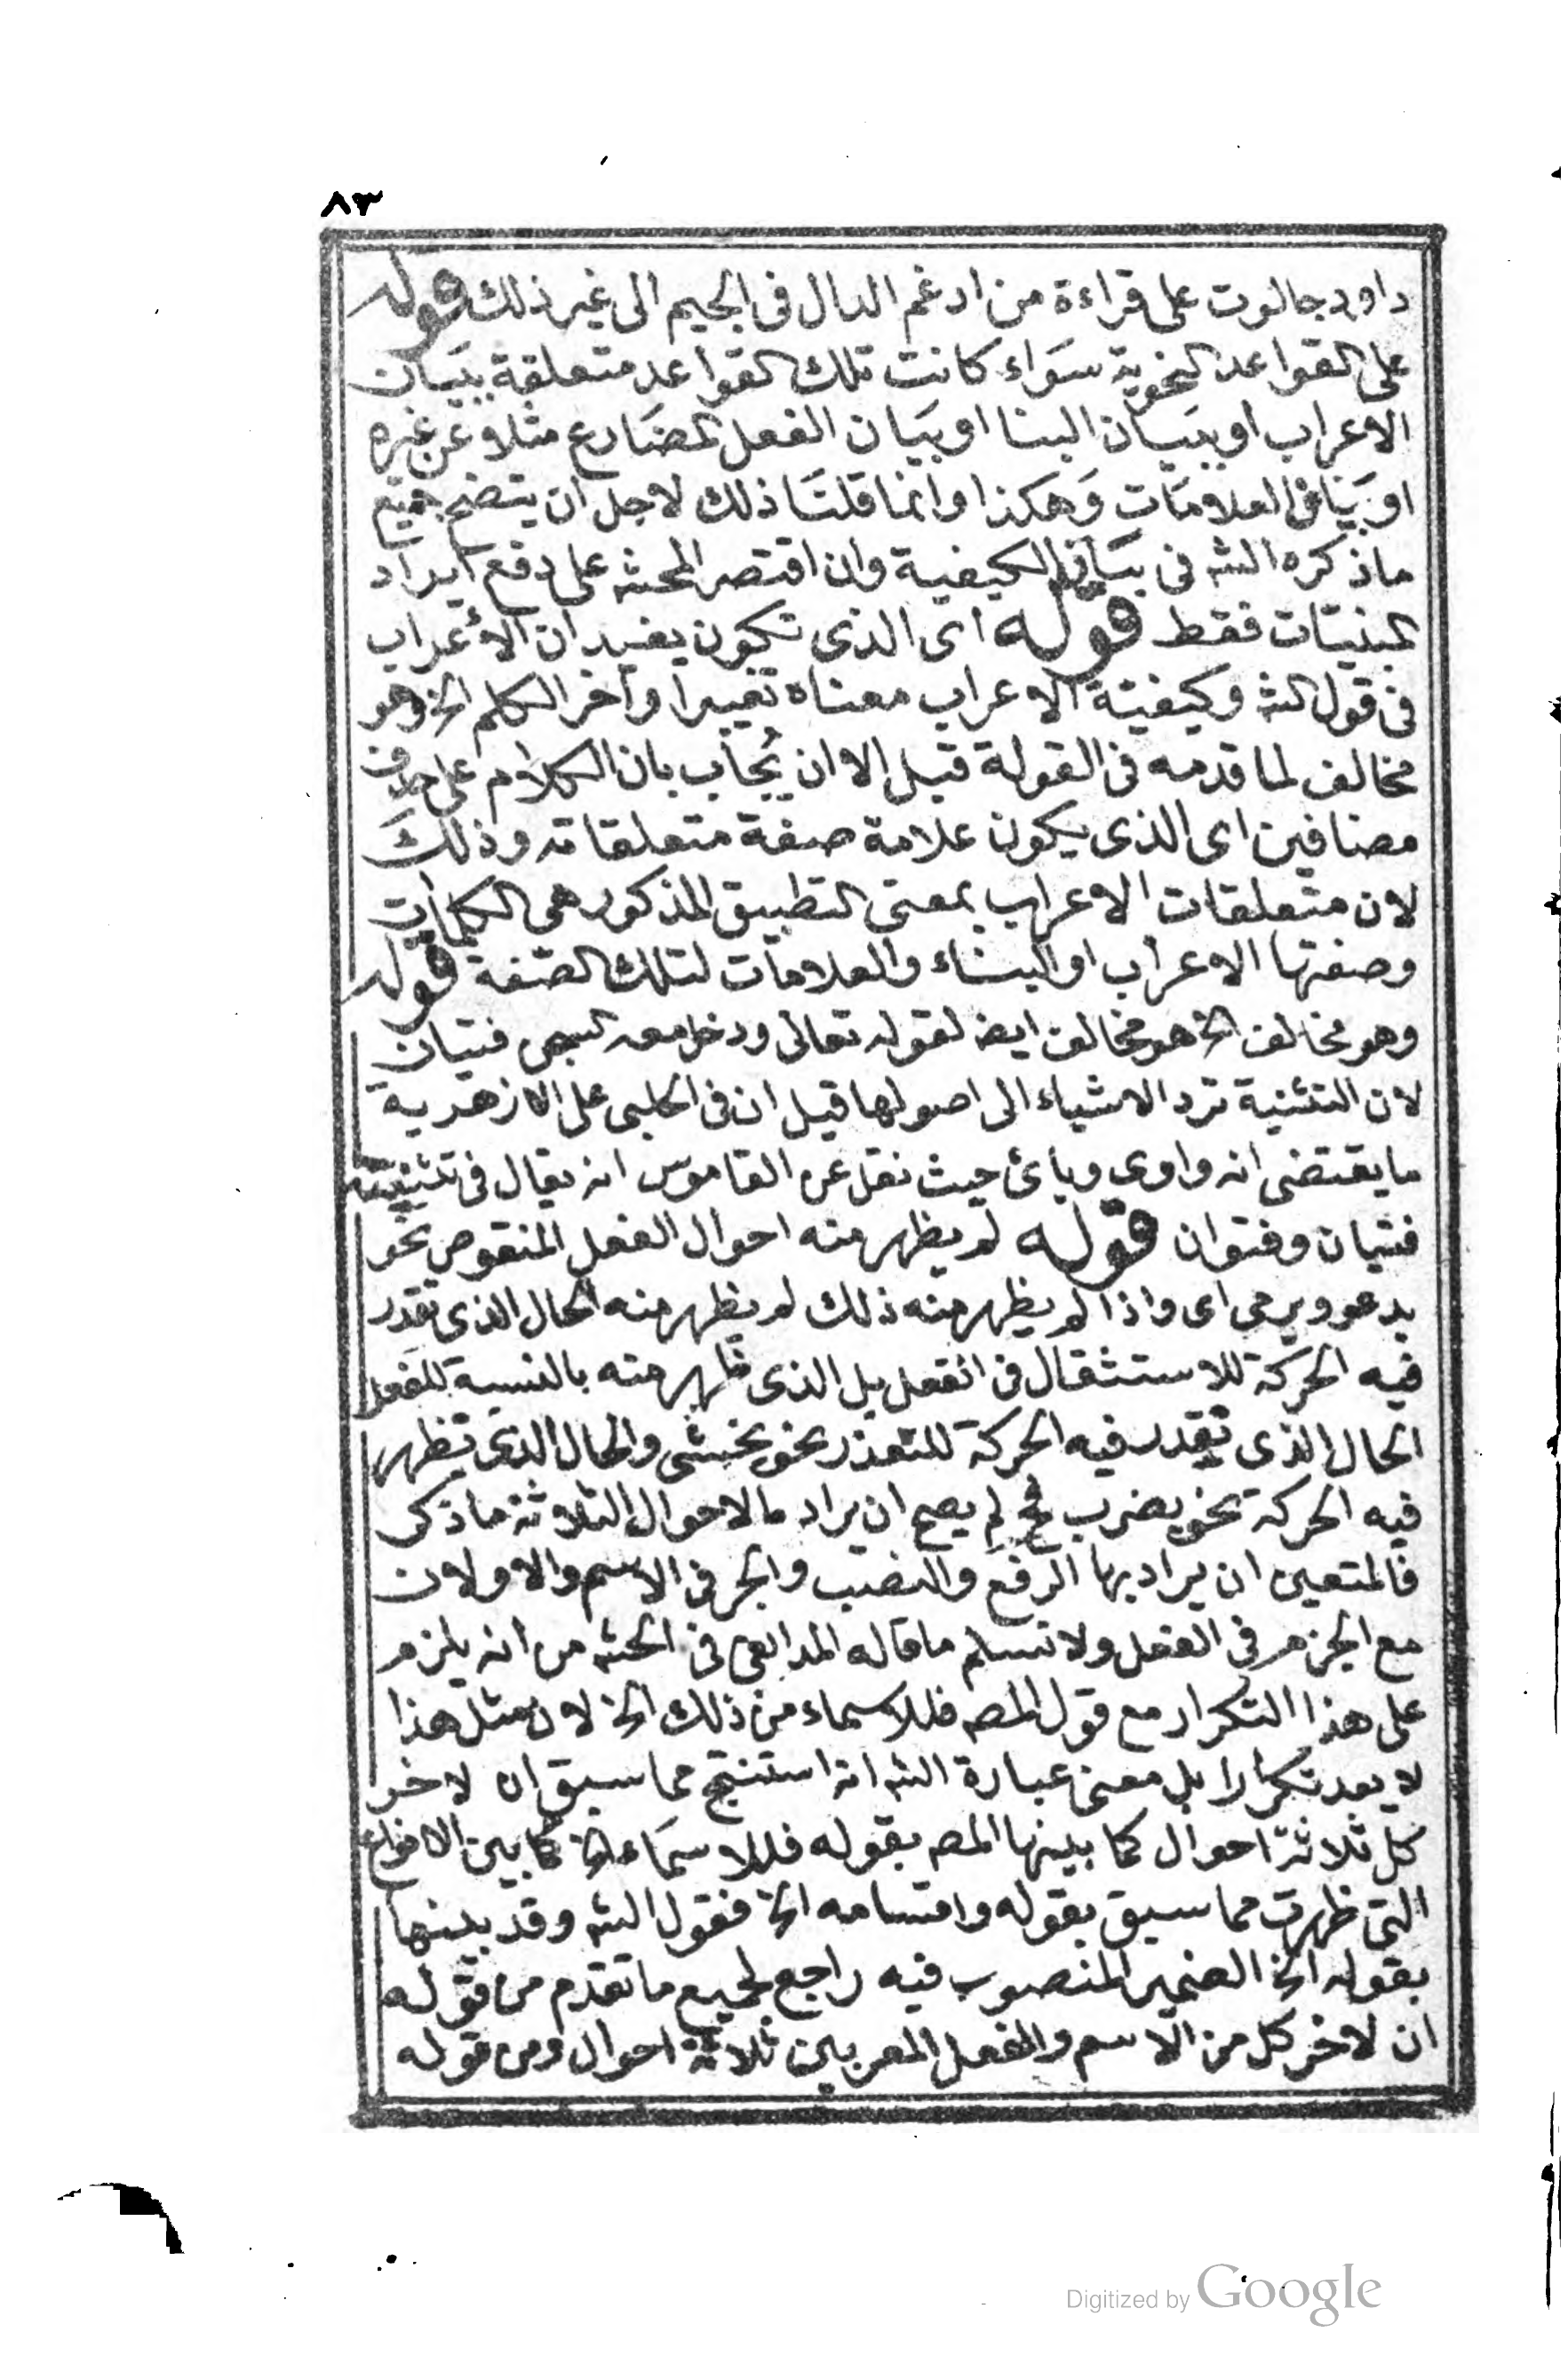 ٨٣
داود جالوت على قراءة من ادغم الدال فى الجيم الى غير ذلك قوله
على القواعد النحوية سواء كانت تلك القواعد متعلقة ببيان
الاعراب او ببيان البنا او بيان الفعل المضارع مثلا وعن غيره
او بيان العلامات وهكذا وانما قلنا ذلك لاجل ان يتضح جميع
ماذكره الشه فى بيان الكيفية وان اقتصر المحشه على دفع ايراد
المبنيات فقط قوله اى الذى تكون يفيد ان الأعراب
فى قول الشه وكيفية الاعراب معناه تغيير اواخر الكلم الخ وهو
مخالف لما قدمه فى القولة قبل الا ان يُجاب بان الكلام على حذف
مضافين اى الذى يكون علامة صفة متعلقاته وذلك
لان متعلقات الاعراب بمعنى التطبيق المذكور هى الكلمات
وصفتها الاعراب او البناء والعلامات لتلك الصفة قوله
وهو مخالف الخ هو مخالف ايضا لقوله تعالى ودخل معه السجن فتيان
لان التثنية ترد الاشياء الى اصولها قيل ان فى الحلبى على الازهرية
ما يقتضى انه واوى ويائ حيث نقل عن القاموس انه يقال فى تثنيته
فتيان وفتوان قوله لم يظهر منه احوال الفعل المنقوص نحو
يدعو ويرمى اى واذا لم يظهر منه ذلك لم يظهر منه الحال الذى تقدر
فيه الحركة للاستثقال فى الفعل بل الذى ظهر منه بالنسبة للفعل
الحال الذى تقدر فيه الحركة للتعذر نحو يخشى والحال الذى تظهر
فيه الحركة نحو يضرب فح لم يصح ان يراد بالاحوال الثلاثة ما ذكر
فالمتعين ان يراد بها الرفع والنصب والجر فى الاسم والاولان
مع الجزم فى الفعل ولا نسلم ما قاله المدابغى فى الحشه من انه يلزم
على هذا التكرار مع قول المصه فللاسماء من ذلك الخ لان مثل هذا
لا يعد تكرارا بل معنى عبارة الشه انه استنتج مما سبق ان لاخر
كل ثلاثة احوال كما بينها المصه بقوله فللاسماء الخ كما بين الانواع
التى ظهرت مما سبق بقوله واقسامه الخ فقول الشه وقد بينها
بقوله الخ الضمير المنصوب فيه راجع لجميع ما تقدم من قوله
ان لاخر كل من الاسم والفعل المعربين ثلاثة احوال ومن قوله
Digitized by Google